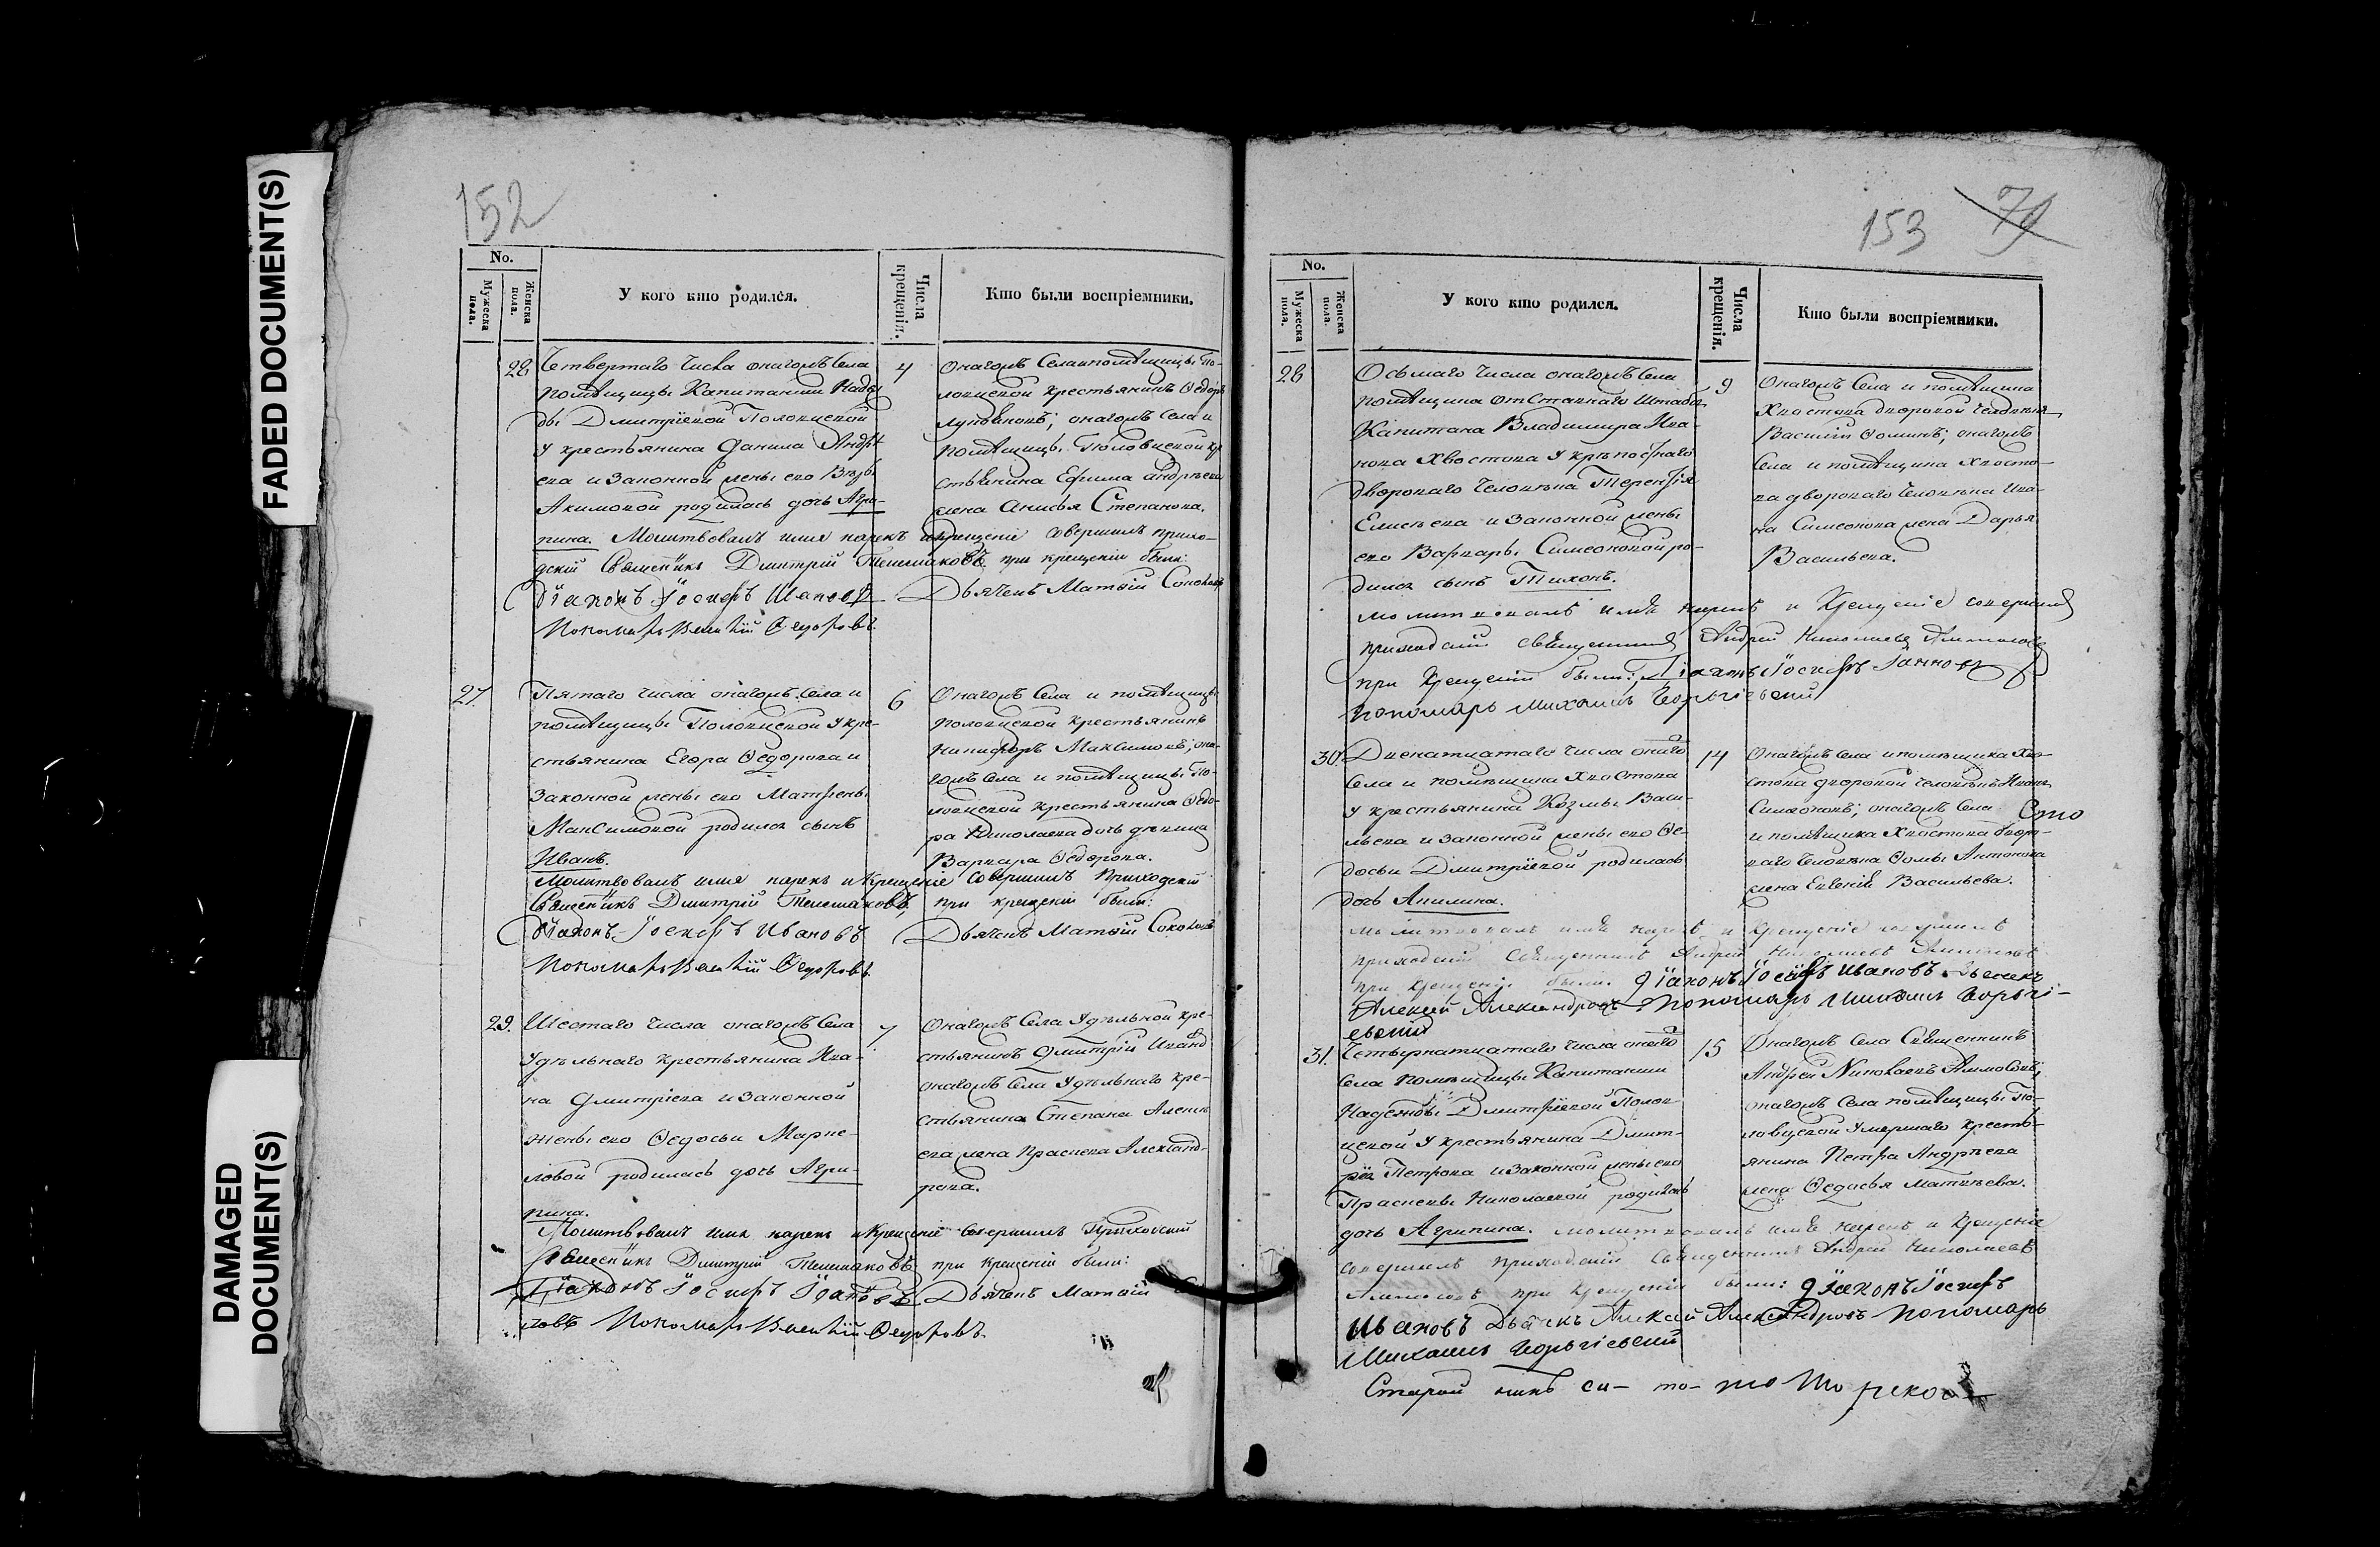 FADED DOCUMENT(S)
DAMAGED
DOCUMENT(S)
152
No.
Мужеска пола.
Женска пола.
У кого кто родился.
Числа крещенія.
Кто были воспріемники.
28
Четвертаго числа онагожъ Села
помѣщицы Капитанши Надеж
ды Дмитріевой Половцевой
у крестьянина Данила Андрѣ
ева и законной жены его
Акимовой родилась дочь Агри-
пина. Молитвовалъ имя нарекъ и крещеніе совершилъ прихо-
дскій Священикъ Дмитрій при крещеніи были:
Діаконъ Іосифъ Ивановъ Дьячекъ Матвій Соколовъ
Пономарь Василій Федоровъ
4
Онагожъ Села и помѣщицы По-
ловцевой крестьянинъ Ѳедоръ
онагожъ Села и
помѣщицы Половцевой кр
стьянина Ефима Андрѣева
жена Анисья Степанова.
27.
Пятаго числа онагожъ Села и
помѣщицы Половцевой у кре-
стьянина Егора Ѳедорова и
законной жены его Матрены
Максимовой родился сынъ
Иванъ.
Молитвовалъ имя нарекъ и крещеніе совершилъ Приходскій
Священикъ Дмитрій при крещеніи были:
Діаконъ Іосифъ Ивановъ Дьячекъ Матвій Соколовъ
Пономарь Василій Федоровъ
6
Онагожъ Села и помѣщицы
Половцевой крестьянинъ
Никифоръ Максимовъ; она-
гожъ Села и помѣщицы По-
ловцевой крестьянина Ѳедо-
ра Николаева дочь дѣвица
Варвара Ѳедорова.
29.
Шестаго числа онагожъ Села
Удѣльнаго крестьянина Ива-
на Дмитріева и законной
жены его Ѳедосьи
родилась дочь Агри-
пина.
Молитвовалъ имя нарекъ и крещеніе совершилъ Приходскій
Священикъ Дмитрій при крещеніи были:
Діаконъ Іосифъ Дьячекъ Матвій
Пономарь Василій Федоровъ
7
Онагожъ Села Удѣльной кре-
стьянинъ Дмитрій
онагожъ Села Удѣльнаго кре-
стьянина Степана
жена Александ-
рова.
153 79
No.
Мужеска пола.
Женска пола.
У кого кто родился.
Числа крещенія.
Кто были воспріемники.
28
Осьмаго числа онагожъ Села
помѣщика отставнаго Штабсъ
Капитана Владимира Ива-
нова Хвостова у крѣпостнаго
двороваго человѣка Терентія
Елисѣева и законной жены
его Варвары Симеоновой ро-
дился сынъ Тихонъ.
молитвовалъ имя нарекъ и крещеніе совершилъ
приходскій священникъ Андрей Николаевъ Аммосовъ
при крещеніи были: Діаконъ Іосифъ
пономарь Михаилъ
9
Онагожъ Села и помѣщика
Хвостова дворовой человѣкъ
Василій Ѳоминъ; онагожъ
Села и помѣщика Хвосто-
ва двороваго человѣка Ива-
на Симеонова жена Дарья
Васильева.
30.
Двенатцатаго числа онаго
Села и помѣщика Хвостова
у крестьянина Козмы Васи-
льева и законной жены его Ѳе-
досьи Дмитріевой родилась
дочь Акилина.
молитвовалъ имя нарекъ и крещеніе совершилъ
приходскій священникъ Андрей Николаевъ Аммосовъ
при крещеніи были: Діаконъ Іосифъ Ивановъ Дьячекъ
Алексей Александровъ Пономарь Михаилъ
14
Онагожъ Села и помѣщика Хво-
стова дворовой человѣкъ Иванъ
Симеоновъ; онагожъ Села
и помѣщика Хвостова дворо-
ваго человѣка Ѳомы Антонова
жена Евгенія Васильева.
Сто
31.
Четырнатцатаго числа онаго
Села помѣщицы Капитанши
Надежды Дмитріевой Полов-
цевой у крестьянина Дмит-
рія Петрова и законной жены его
Прасковьи Николаевой родилась
дочь Агрипина. молитвовалъ имя нарекъ и крещеніе
совершилъ приходскій священникъ Андрей Николаевъ
Аммосовъ при крещеніи были: Діаконъ Іосифъ
Ивановъ Дьячекъ Алексей Александровъ Пономарь
Михаилъ
15
Онагожъ Села Священникъ
Андрей Николаевъ Аммосовъ;
онагожъ Села помѣщицы По-
ловцевой умершаго кресть-
янина Петра Андрѣева
жена Ѳедосья Матвѣева.